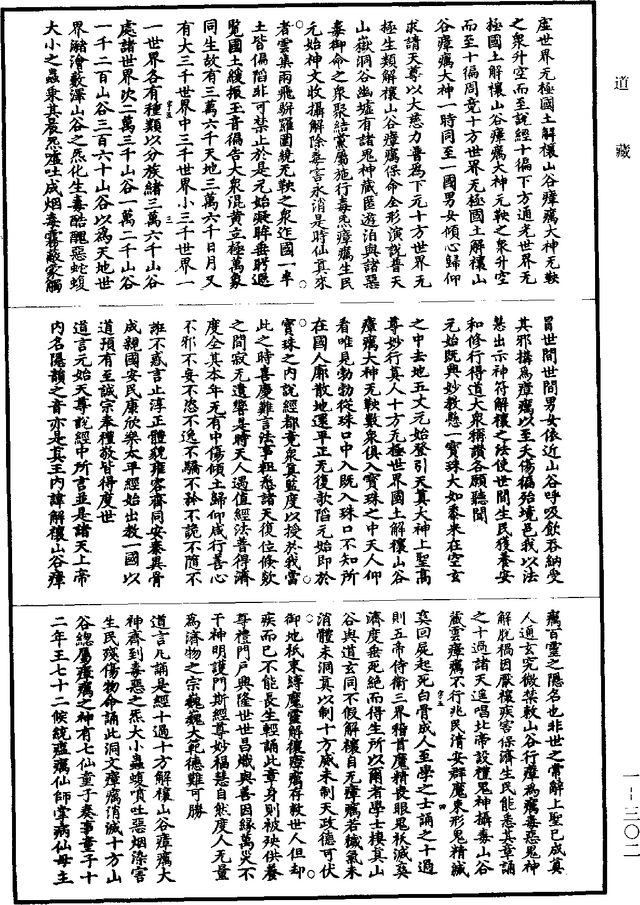 道藏
座世界无極國土解禳山谷瘴癘大神无鞅
之衆升空而至說經十徧下方通光世界无
極國土解禳山谷瘴癘大神无鞅之衆升空
而至十徧周竟十方世界无極國土解禳山
谷瘴癘大神一時同至一國男女傾心歸仰
求請天尊以大慈力普爲下元十方世界无
極生類解禳山谷瘴癘保命全形演說普天
山嶽洞谷幽墟有諸鬼神藏匿遊泊與諸惡
毒御命之衆聚結黨屬施行毒炁瘴癘生民
元始神文收攝解除尋言永消是時仙真來
者雲集雨飛駢羅圍繞无鞅之衆迮國一半
土皆偏陷非可禁止於是元始凝眸垂眄遐
覽國土緩振玉音徧告大衆混黄立極萬象
同生故有三萬六千天地三萬六千日月又
有大三千世界中三千世界小三千世界一
一世界各有種類以分族緒三萬六千山谷
處諸世界次二萬三千山谷一萬二千山谷
一千二百山谷三百六十山谷以爲天地世
界翳薈藪澤山谷之炁化生毒酷醜惡蛇蝮
大小之蟲乘其晨炁噓吐成烟毒霧蔽蒙觸
冒世間世間男女依近山谷呼吸飲吞納受
其邪搆爲瘴癘以至夭傷徧殆境邑我以法
慧出示神符解禳之法使世間生民獲養安
和修行得道大衆稱讚各願聽聞
元始既興妙教懸一寶珠大如黍米在空玄
之中去地五丈元始登引天真大神上聖高
尊妙行真人十方无極世界國土解禳山谷
瘴癘大神无鞅數衆俱入寶珠之中天人仰
看唯見勃勃從珠口中入既入珠口不知所
在國人廓散地還平正无復欹陷元始即於
寶珠之內說經都竟衆真監度以授於我當
此之時喜慶難言法事粗悉諸天復位倏欻
之間寂无遺響是時天人遇值經法普得濟
度全其本年无有中傷傾土歸仰咸行善心
不邪不妄不恣不逸不驕不矜不詭不隨不
誑不惑言止淳正體貌雍容齊同安泰異骨
成親國安民康欣樂太平經始出教一國以
道預有至誠宗奉禮敬皆得度世
道言元始天尊說經中所言並是諸天上帝
內名隱韻之音亦是真王內諱解禳山谷瘴
癘百靈之隱名也非世之常辭上聖已成真
人通玄究微禁敕山谷行瘴爲癘毒惡鬼神
解脫禍因厭禳疾害保濟生民能悉其章誦
之十過諸天遥唱北帝設禮鬼神攝毒山谷
藏雲瘴癘不行兆民清安群魔束形鬼精滅
爽回屍起死白骨成人至學之士誦之十過
則五帝侍衛三界稽首魔精喪眼鬼祅滅爽
濟度垂死絶而得生所以爾者學士棲真山
谷與道玄同不假解禳自无瘴癘若穢氣未
消體未洞真以制十方威未制天政德可伏
御地祇束縛魔靈解禳瘴癘存救世人但却
疾而已不能長生輕誦此章身則被殃供養
尊禮門戶興隆世世昌熾與善因緣萬災不
干神明護門斯經尊妙福慧自然度人无量
爲濟物之宗巍巍大範德難可勝
道言凡誦是經十過十方解禳山谷瘴癘大
神齊到毒惡之炁大小蟲蝮噴吐惡烟染害
生民殘傷物命誦此洞文瘴癘消滅十方山
谷總屬瘴癘之神有七仙童子奏事童子十
二年王七十二候統蘊癘仙師掌病仙母主
一-三〇二